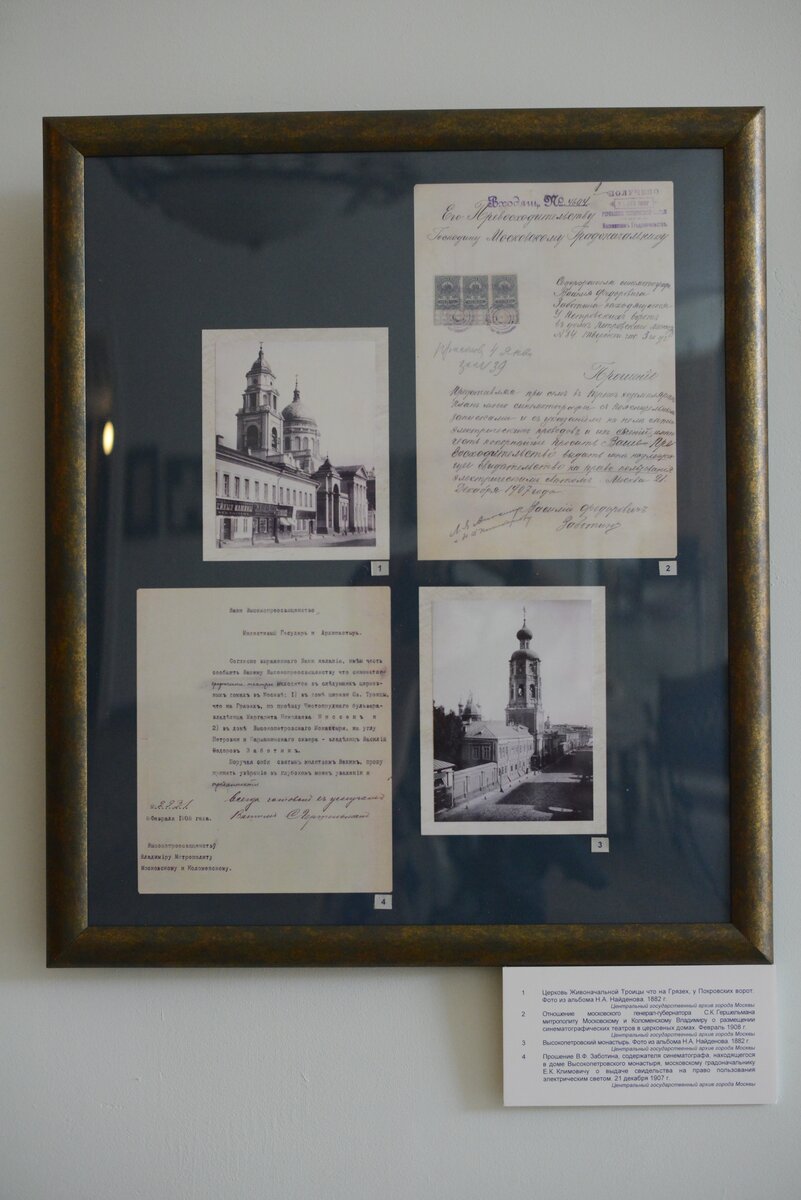 Входящ. № 4604
ПОЛУЧЕНО
Его Превосходительству
Господину Московскому Градоначальнику
Содержателя синематографа
Василія Федоровича
Заботина находящагося
У Петровскихъ воротъ
въ домѣ Петровскаго
№ 34
39
Прошеніе
Представляя при семъ въ
электрическихъ проводовъ и
честь покорнѣйше просить Ваше Пре
восходительство выдать мнѣ
свидѣтельство на право пользованія
электрическимъ свѣтомъ. Москва 21
Декабря 1907 года
Василій Федоровичъ
Заботинъ
1
2
Ваше Высокопреосвященство,
Милостивый Государь и Архипастырь.
Согласно выраженнаго Вами желанія, имѣю честь
сообщить Вашему Высокопреосвященству что синемато-
графические театры находятся въ слѣдующихъ церков-
ныхъ домахъ въ Москвѣ: 1) въ домѣ церкви Св. Троицы,
что на Грязяхъ, по проѣзду Чистопруднаго бульвара-
владѣлица Маргарита Николаевна и
2) въ домѣ Высокопетровскаго Монастыря, на углу
Петровки и Нарышкинскаго сквера - владѣлецъ Василій
Федоровъ Заботинъ.
Поручая себя святымъ молитвамъ Вашимъ, прошу
принять увѣреніе въ глубокомъ моемъ уваженіи и
преданности
всегда готовый къ услугамъ
Вашимъ С. Гершельманъ
Февраля 1908 года.
Высокопреосвященству
Владиміру Митрополиту
Московскому и Коломенскому.
3
4
1 Церковь Живоначальной Троицы что на Грязех, у Покровских ворот.
Фото из альбома Н.А. Найденова. 1882 г.
Центральный государственный архив города Москвы
2 Отношение московского генерал-губернатора С.К.Гершельмана
митрополиту Московскому и Коломенскому Владимиру о размещении
синематографических театров в церковных домах. Февраль 1908 г.
Центральный государственный архив города Москвы
3 Высокопетровский монастырь. Фото из альбома Н.А. Найденова. 1882 г.
Центральный государственный архив города Москвы
4 Прошение В.Ф. Заботина, содержателя синематографа, находящегося
в доме Высокопетровского монастыря, московскому градоначальнику
Е.К. Климовичу о выдаче свидетельства на право пользования
электрическим светом. 21 декабря 1907 г.
Центральный государственный архив города Москвы